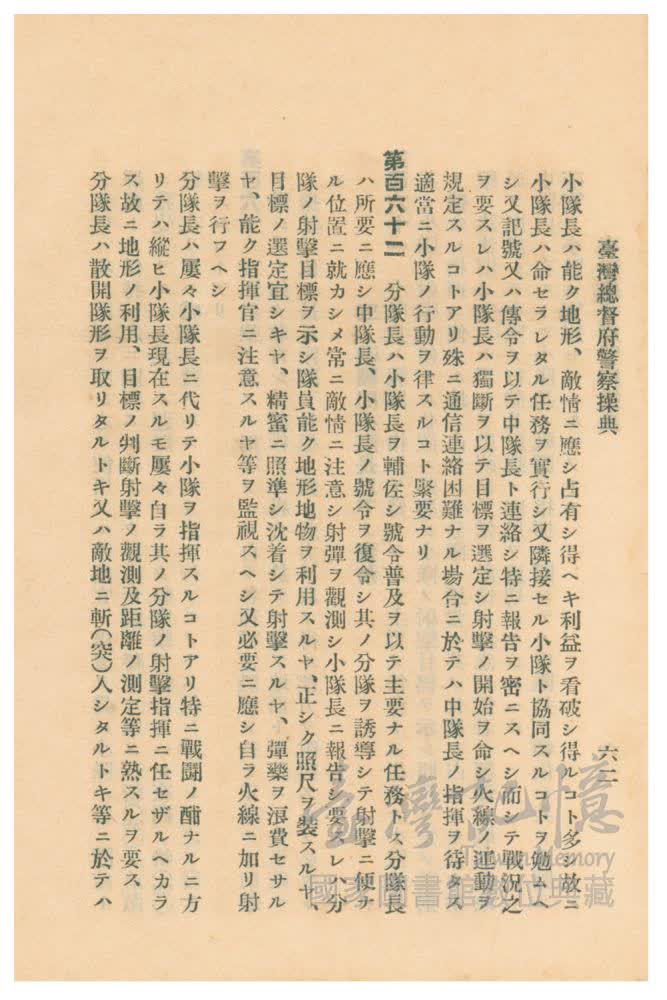 臺灣總督府警察操典
六二
小隊長ハ能ク地形、敵情ニ應シ占有シ得ヘキ利益ヲ看破シ得ルコト多シ故ニ
小隊長ハ命セラレタル任務ヲ實行シ又隣接セル小隊ト協同スルコトヲ勉ムヘ
シ又記號又ハ傳令ヲ以テ中隊長ト連絡シ特ニ報告ヲ密ニスヘシ而シテ戰況之
ヲ要スレハ小隊長ハ獨斷ヲ以テ目標ヲ選定シ射擊ノ開始ヲ命シ火線ノ運動ヲ
規定スルコトアリ殊ニ通信連絡困難ナル場合ニ於テハ中隊長ノ指揮ヲ待タス
適當ニ小隊ノ行動ヲ律スルコト緊要ナリ
第百六十二 分隊長ハ小隊長ヲ輔佐シ號令普及ヲ以テ主要ナル任務トス分隊長
ハ所要ニ應シ中隊長、小隊長ノ號令ヲ復令シ其ノ分隊ヲ誘導シテ射擊ニ便ナ
ル位置ニ就カシメ常ニ敵情ニ注意シ射彈ヲ觀測シ小隊長ニ報告シ要スレハ分
隊ノ射擊目標ヲ示シ隊員能ク地形地物ヲ利用スルヤ、正シク照尺ヲ裝スルヤ、
目標ノ選定宜シキヤ、精蜜ニ照準シ沈着シテ射擊スルヤ、彈藥ヲ浪費セサル
ヤ、能ク指揮官ニ注意スルヤ等ヲ監視スヘシ又必要ニ應シ自ラ火線ニ加リ射
擊ヲ行フヘシ
分隊長ハ屢々小隊長ニ代リテ小隊ヲ指揮スルコトアリ特ニ戰鬪ノ酣ナルニ方
リテハ縱ヒ小隊長現在スルモ屢々自ラ其ノ分隊ノ射擊指揮ニ任セザルヘカラ
ス故ニ地形ノ利用、目標ノ判斷射擊ノ觀測及距離ノ測定等ニ熟スルヲ要ス
分隊長ハ散開隊形ヲ取リタルトキ又ハ敵地ニ斬(突)入シタルトキ等ニ於テハ
臺灣記憶
Taiwan Memory
國家圖書館數位典藏